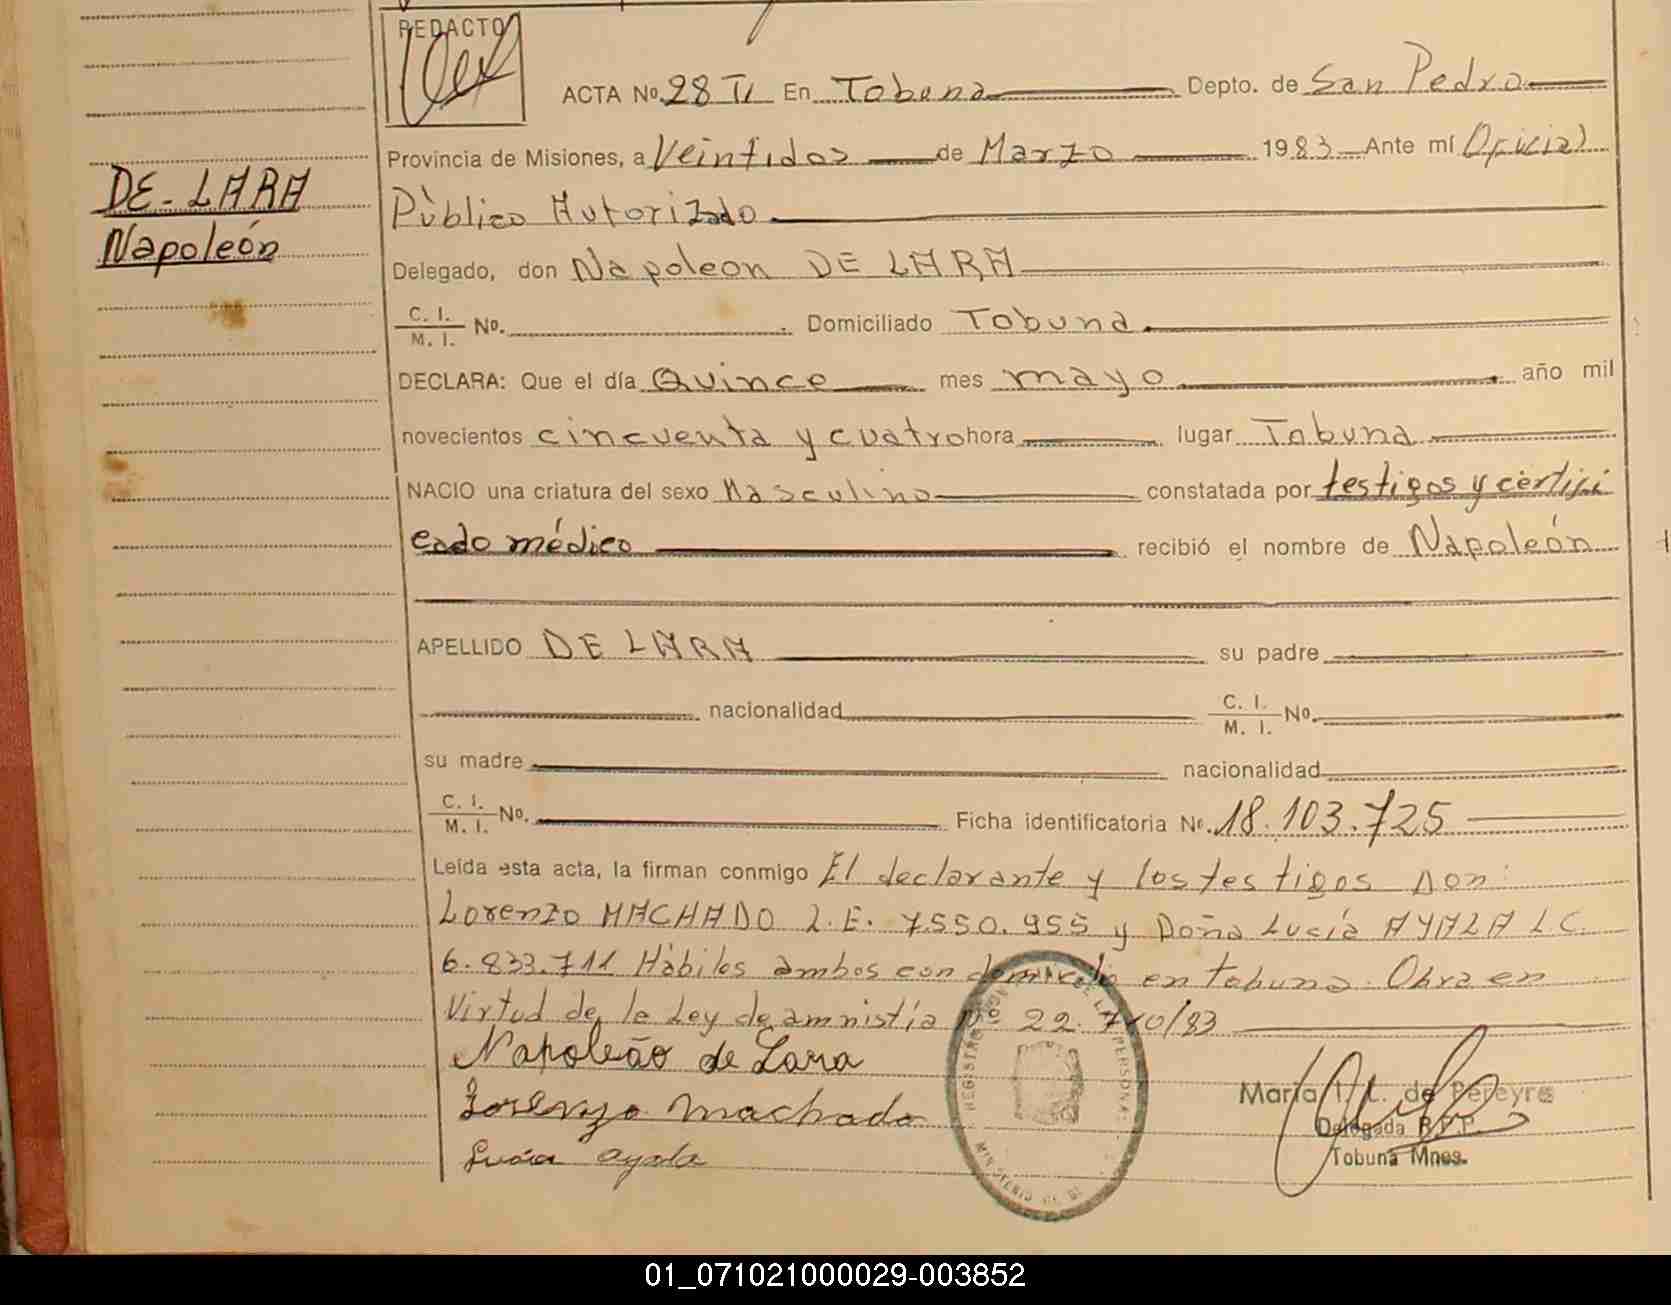 REDACTO
ACTA No. 28 II En Tobuna Depto. de San Pedro
Provincia de Misiones, a Veintidos de Marzo 1983 Ante mí Oficial
DE-LARA
Público Autorizado
Napoleón
Delegado, don Napoleon DE LARA
C. I. M. I. No. Domiciliado Tobuna
DECLARA: Que el día Quince mes mayo año mil
novecientos cincuenta y cuatro hora lugar Tobuna
NACIO una criatura del sexo Masculino constatada por testigos y certifi
cado médico recibió el nombre de Napoleón
APELLIDO DE LARA su padre
nacionalidad C. I. M. I. No.
su madre nacionalidad
C. I. M. I. No. Ficha identificatoria No. 18.103.725
Leída esta acta, la firman conmigo El declarante y los testigos Don:
Lorenzo MACHADO L.E. 7.550.955 y Doña Lucía AYALA L C.
6.833.711 Hábiles ambos con domicilio en tobuna. Obra en
Virtud de la Ley de amnistía No 22.710/83
Napoleão de Lara
Lorenzo machado
Lucia ayala
María I. L. de Pereyra
Delegada R.P.P.
Tobuna Mnes.
01_071021000029-003852